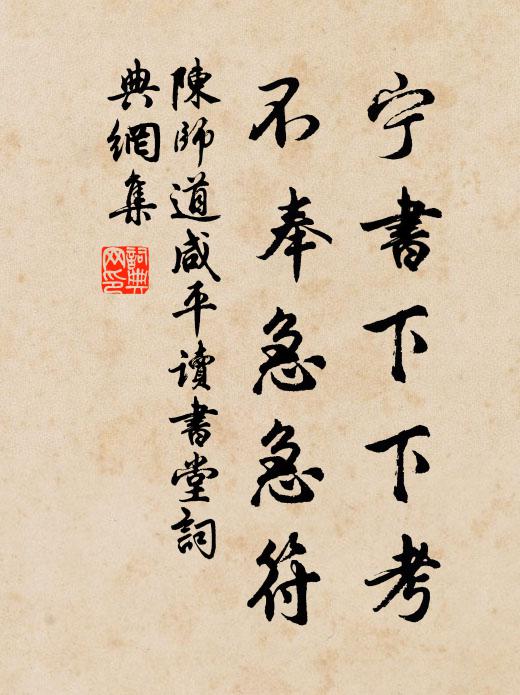 宁書下下考
不奉急急符
陳師道咸平讀書堂詞
典網集
詞典網印